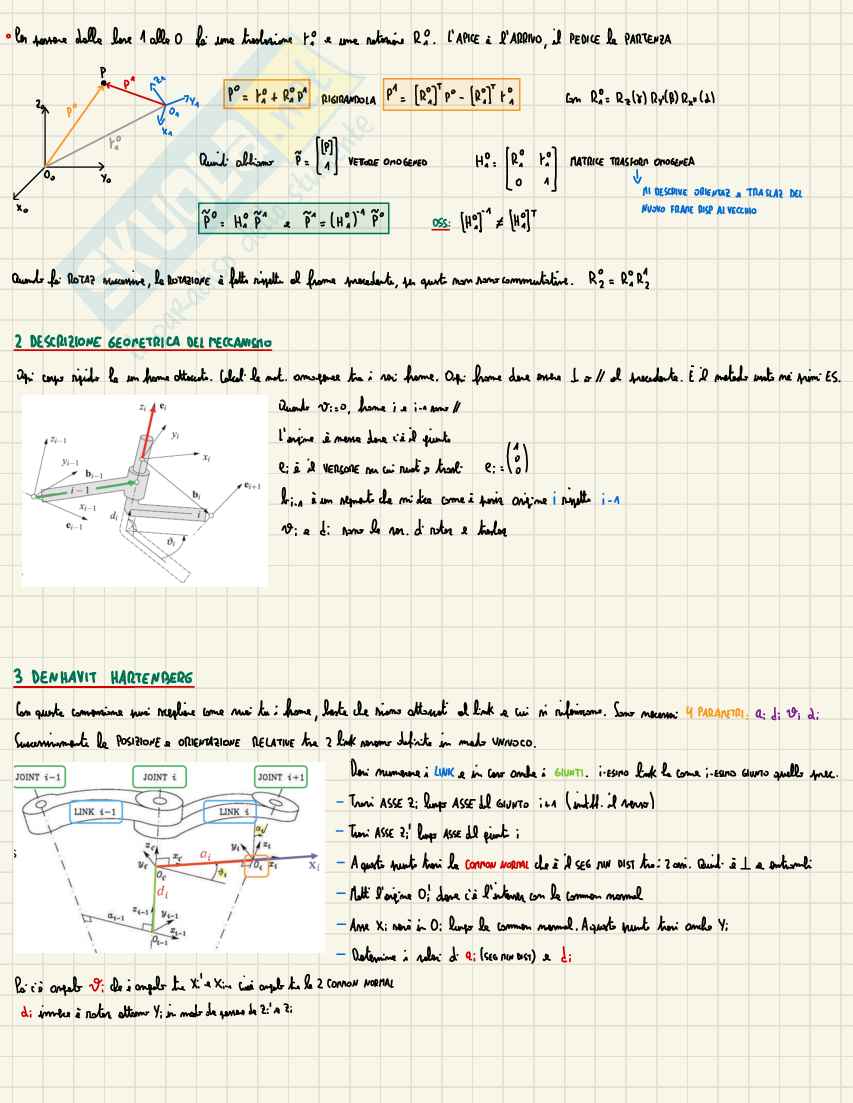 • Per passare dalla base 1 alla 0 fai una traslazione t₁⁰ e una rotazione R₁⁰. L'APICE è l'ARRIVO, il PEDICE la PARTENZA
P
P⁰
P¹
Z₀
Y₀
X₀
O₀
t₁⁰
Z₁
Y₁
O₁
X₁
P⁰ = t₁⁰ + R₁⁰P¹ RIGIRANDOLA P¹ = [R₁⁰]ᵀ P⁰ - [R₁⁰]ᵀ t₁⁰ Con R₁⁰ = R_z(γ) R_y(β) R_x⁰(α)
Quindi abbiamo P̃ = [[P] 1] VETTORE OMOGENEO H₁⁰ = [R₁⁰ t₁⁰ 0 1] MATRICE TRASFORM OMOGENEA
MI DESCRIVE ORIENTAZ e TRASLAZ DEL
NUOVO FRAME RISP AL VECCHIO
P̃⁰ = H₁⁰ P̃¹ e P̃¹ = (H₁⁰)⁻¹ P̃⁰ OSS: [H₁⁰]⁻¹ ≠ [H₁⁰]ᵀ
Quando fai ROTAZ successive, la ROTAZIONE è fatta rispetto al frame precedente, per questo non sono commutative. R₂⁰ = R₁⁰R₂¹
SKUOLA.net
il paradiso dello studente
2 DESCRIZIONE GEOMETRICA DEL MECCANISMO
Ogni corpo rigido ha un frame attaccato. Calcoli le mat. omogenee tra i vari frame. Ogni frame deve essere ⊥ o // al precedente. È il metodo usato nei primi ES.
Quando ϑᵢ=0, frame i e i-1 sono //
L'origine è messa dove c'è il giunto
eᵢ è il VERSORE su cui ruoti o trasli eᵢ = (1 0 0)
bᵢ₋₁ è un segmento che mi dice come è posiz origine i rispetto i-1
ϑᵢ e dᵢ sono le var. di rotaz e traslaz
zᵢ
eᵢ
yᵢ
xᵢ
zᵢ₋₁
yᵢ₋₁
bᵢ₋₁
i − 1
xᵢ₋₁
eᵢ₋₁
bᵢ
eᵢ₊₁
dᵢ
i
ϑᵢ
3 DENHAVIT HARTENBERG
Con questa convenzione puoi scegliere come vuoi tu i frame, basta che siano attaccati al link a cui si riferiscono. Sono necessari 4 PARAMETRI: aᵢ dᵢ ϑᵢ αᵢ
Successivamente la POSIZIONE e ORIENTAZIONE RELATIVE tra 2 link saranno definite in modo UNIVOCO.
JOINT i-1
JOINT i
JOINT i+1
LINK i-1
LINK i
aᵢ
Xᵢ
dᵢ
αᵢ
ϑᵢ
Oᵢ
zᵢ₋₁
yᵢ₋₁
xᵢ₋₁
Oᵢ₋₁
aᵢ₋₁
Devi numerare i LINK e in caso anche i GIUNTI. i-ESIMO link ha come i-ESIMO GIUNTO quello prec.
– Trovi ASSE Zᵢ lungo ASSE del GIUNTO i+1 (indiff. il verso)
– Trovi ASSE Zᵢ' lungo ASSE del giunto i
– A questo punto trovi la COMMON NORMAL che è il SEG MIN DIST tra i 2 assi. Quindi è ⊥ a entrambi
– Metti l'origine Oᵢ' dove c'è l'intersez con la common normal
– Asse Xᵢ sarà in Oᵢ lungo la common normal. A questo punto trovi anche Yᵢ
– Determina i valori di aᵢ (SEG MIN DIST) e dᵢ
Poi c'è angolo ϑᵢ che è angolo tra Xᵢ' e Xᵢ₋₁ cioè angolo tra le 2 COMMON NORMAL
αᵢ invece è rotaz attorno Yᵢ in modo da passare da Zᵢ' a Zᵢ